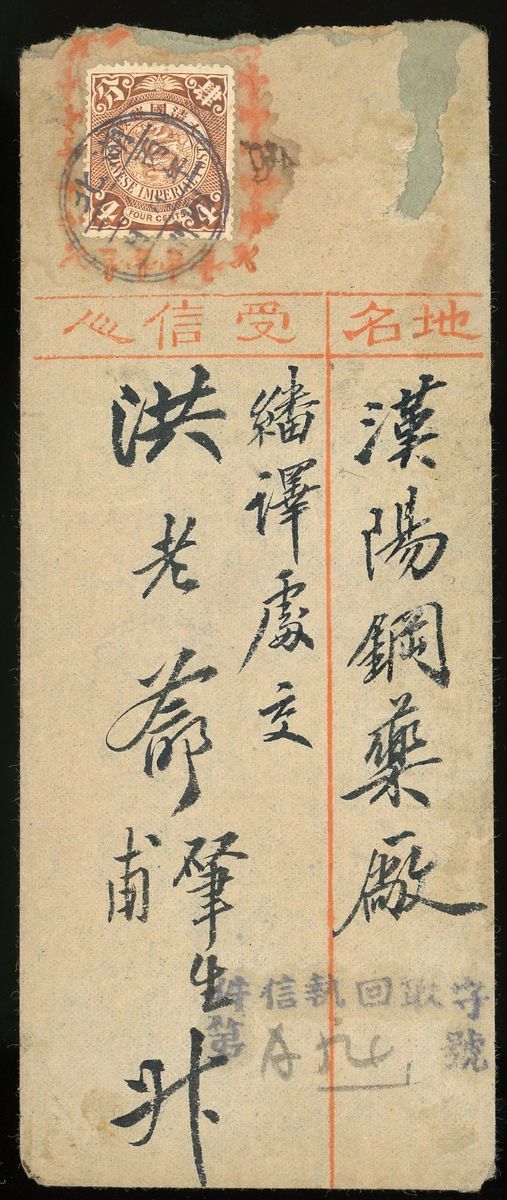 肆分
大清國郵政
CHINESE IMPERIAL POST
4 FOUR CENTS 4
地名
受信人
漢陽鋼藥廠
繙譯處交
洪老爺
肇生
甫
升
字取回執信件
第 號